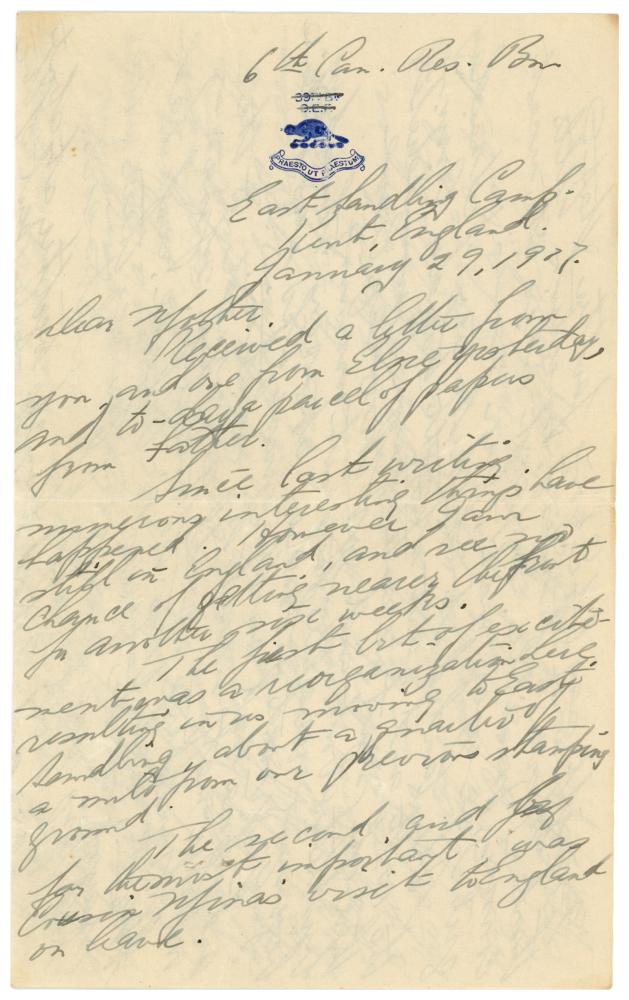 6th Can. Res. Bn
39TH BN
C.E.F.
PRAESTO UT PRAESTEM
East Sandling Camp.
Kent, England.
January 29, 1917.
Dear Mother
Received a letter from
you, and one from Elsie yesterday,
and to-day a parcel of papers
from Father.
Since last writing
numerous interesting things have
happened. However I am
still in England, and see no
chance of getting nearer the front
for another six weeks.
The first bit of excite-
ment was a reorganization here
resulting in us moving to East
Sandling, about a quarter of
a mile from our previous stamping
ground.
The second and by
far the most important was
Cousin Mina's visit to England
on leave.